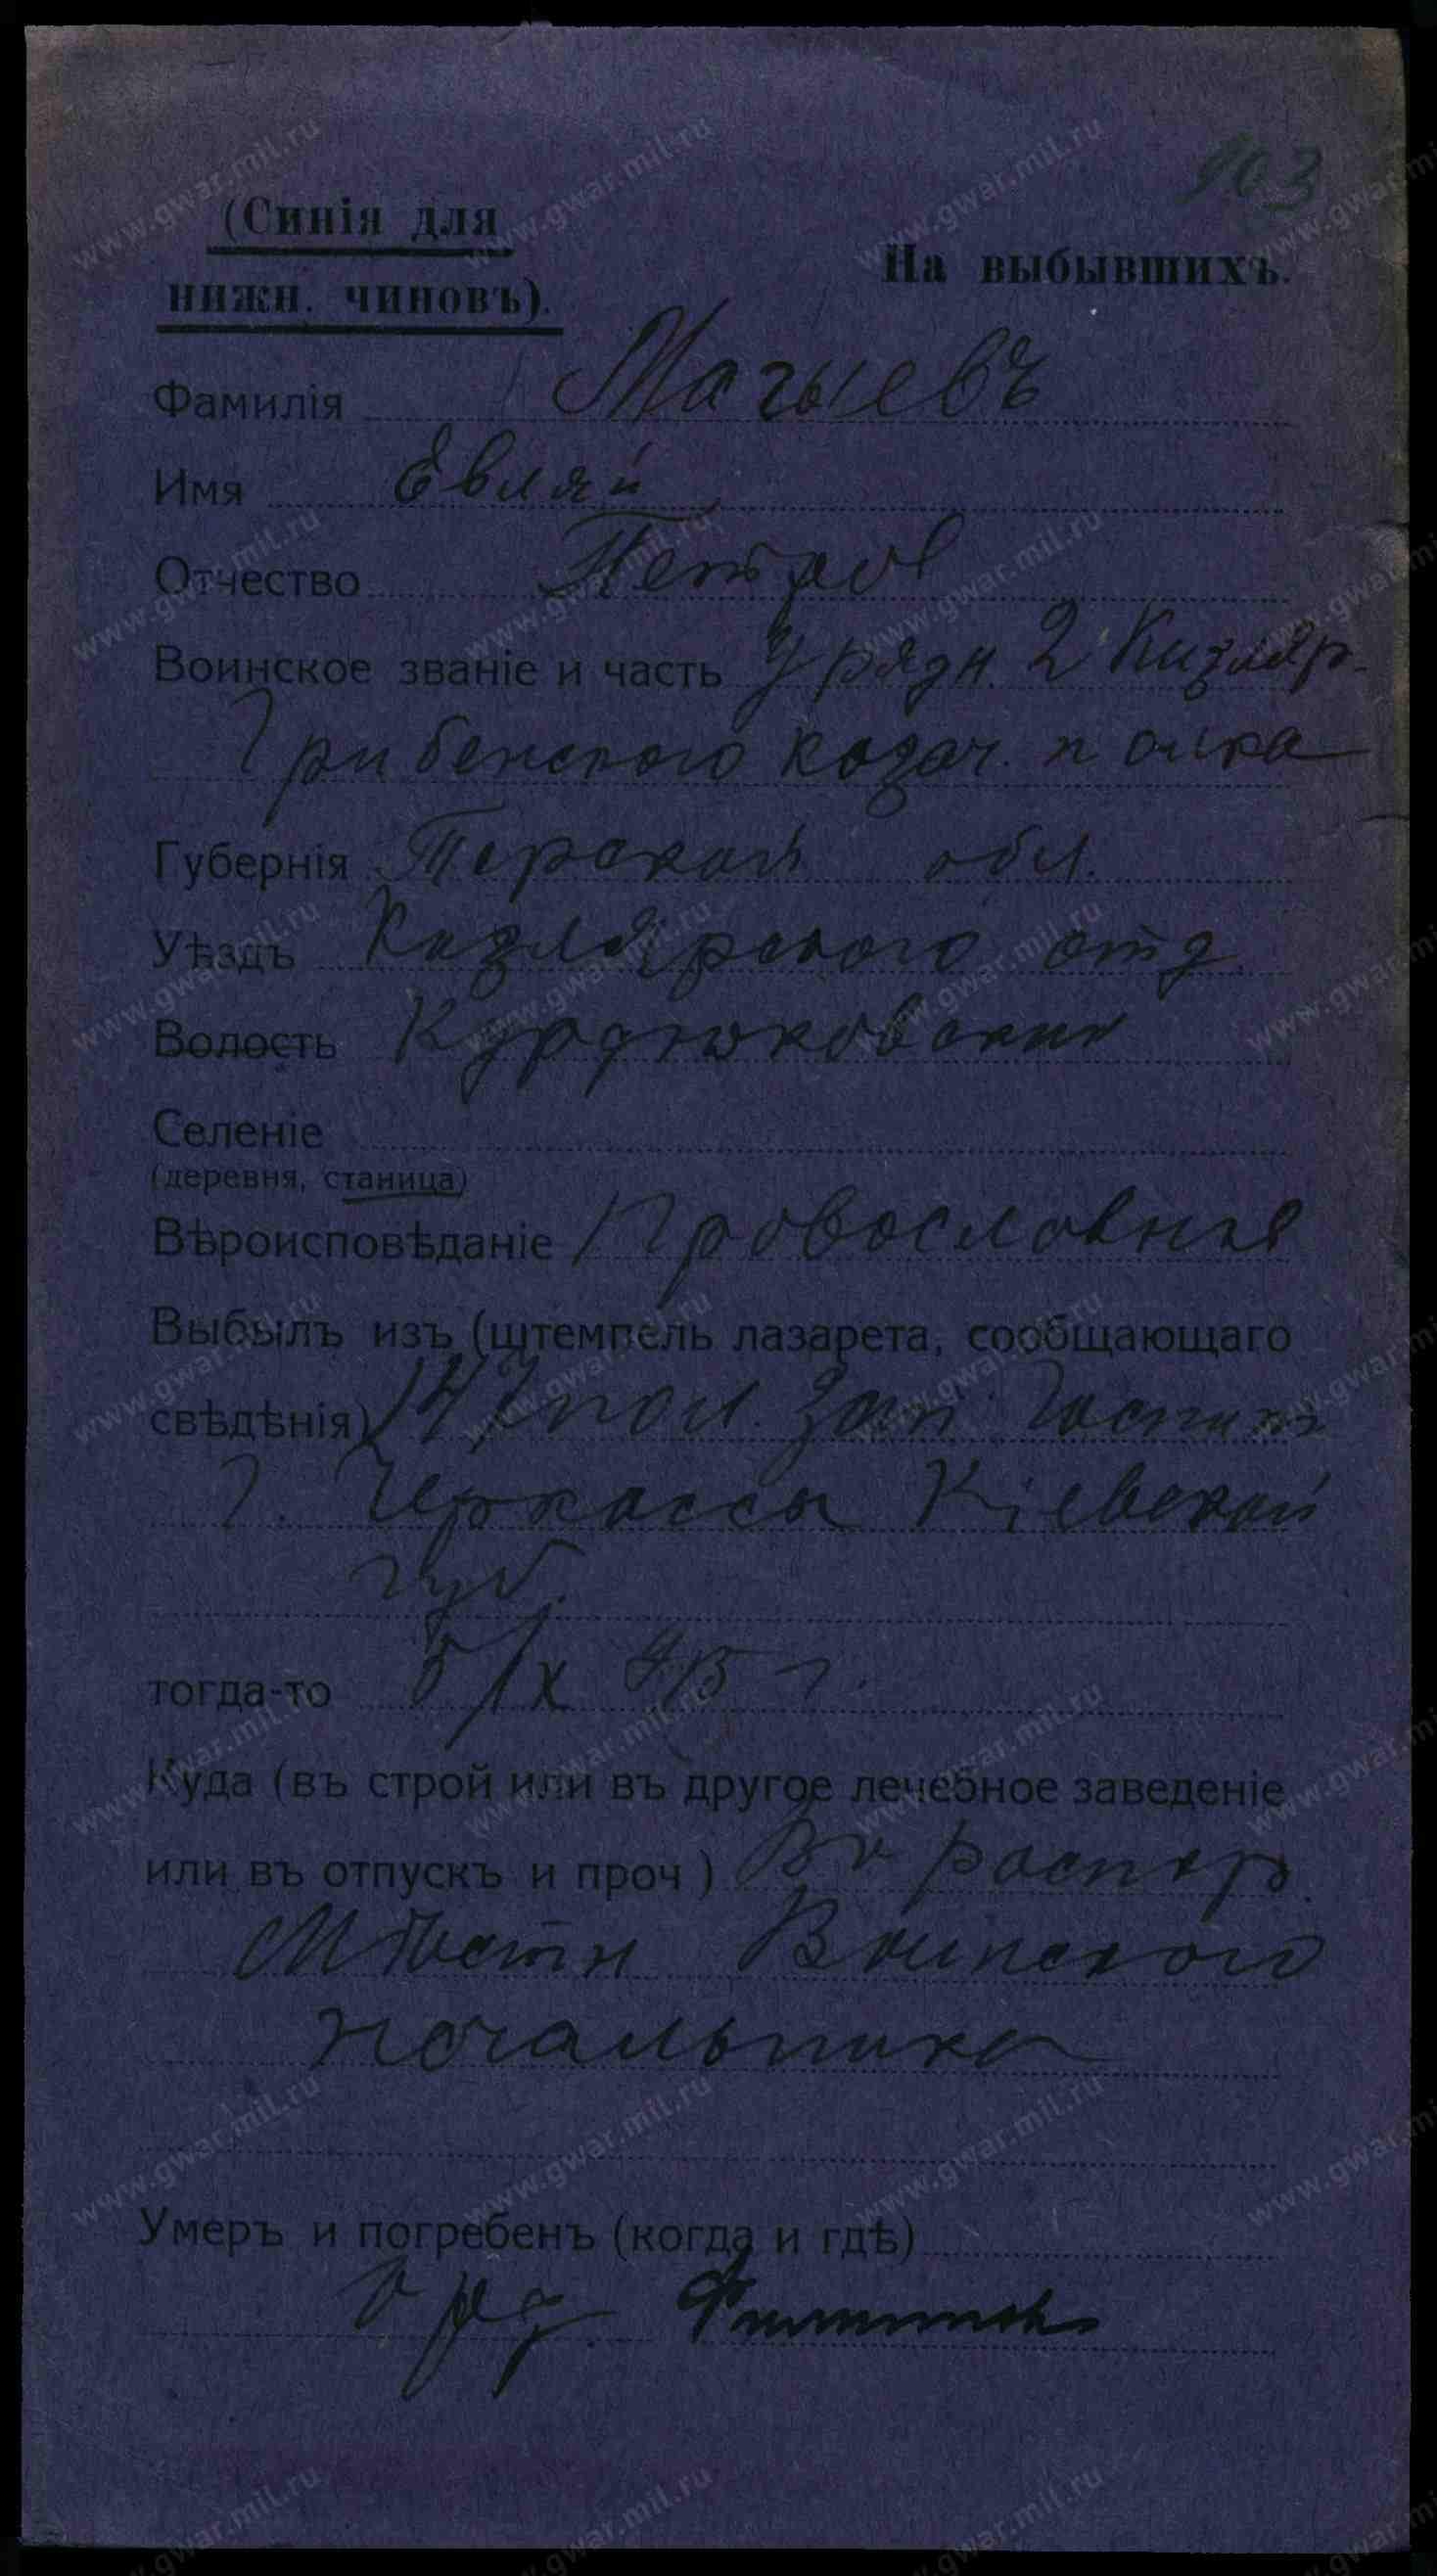 903
(Синія для
нижн. чиновъ).
На выбывшихъ.
Фамилія Магыевъ
Имя Евляй
Отчество Петров
Воинское званіе и часть Урядн. 2 Кизляр-
Грибенского казач. полка
Губернія Терской обл.
Уѣздъ Кизлярского отд.
Волость Курдюковских
Селеніе
(деревня, станица)
Вѣроисповѣданіе Провославное
Выбылъ изъ (штемпель лазарета, сообщающаго
свѣдѣнія) 147 пол. Зап. Госпит
г. Черкассы Кіевской
губ.
тогда-то 5/X 915 г.
Куда (въ строй или въ другое лечебное заведеніе
или въ отпускъ и проч) Въ распор.
Мѣстн Воинского
начальника
Умеръ и погребенъ (когда и гдѣ)